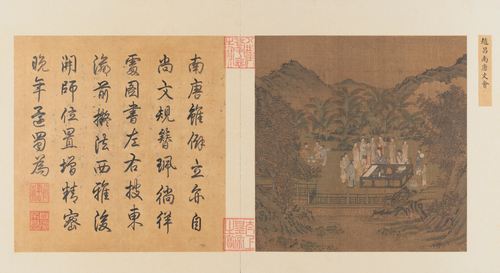 趙昌南唐文會
南唐雖僻立亦自
尚文規簪珮徜徉
處圖書左右披東
瀛前擬法西雅後
開師位置增精密
晚年蜀為